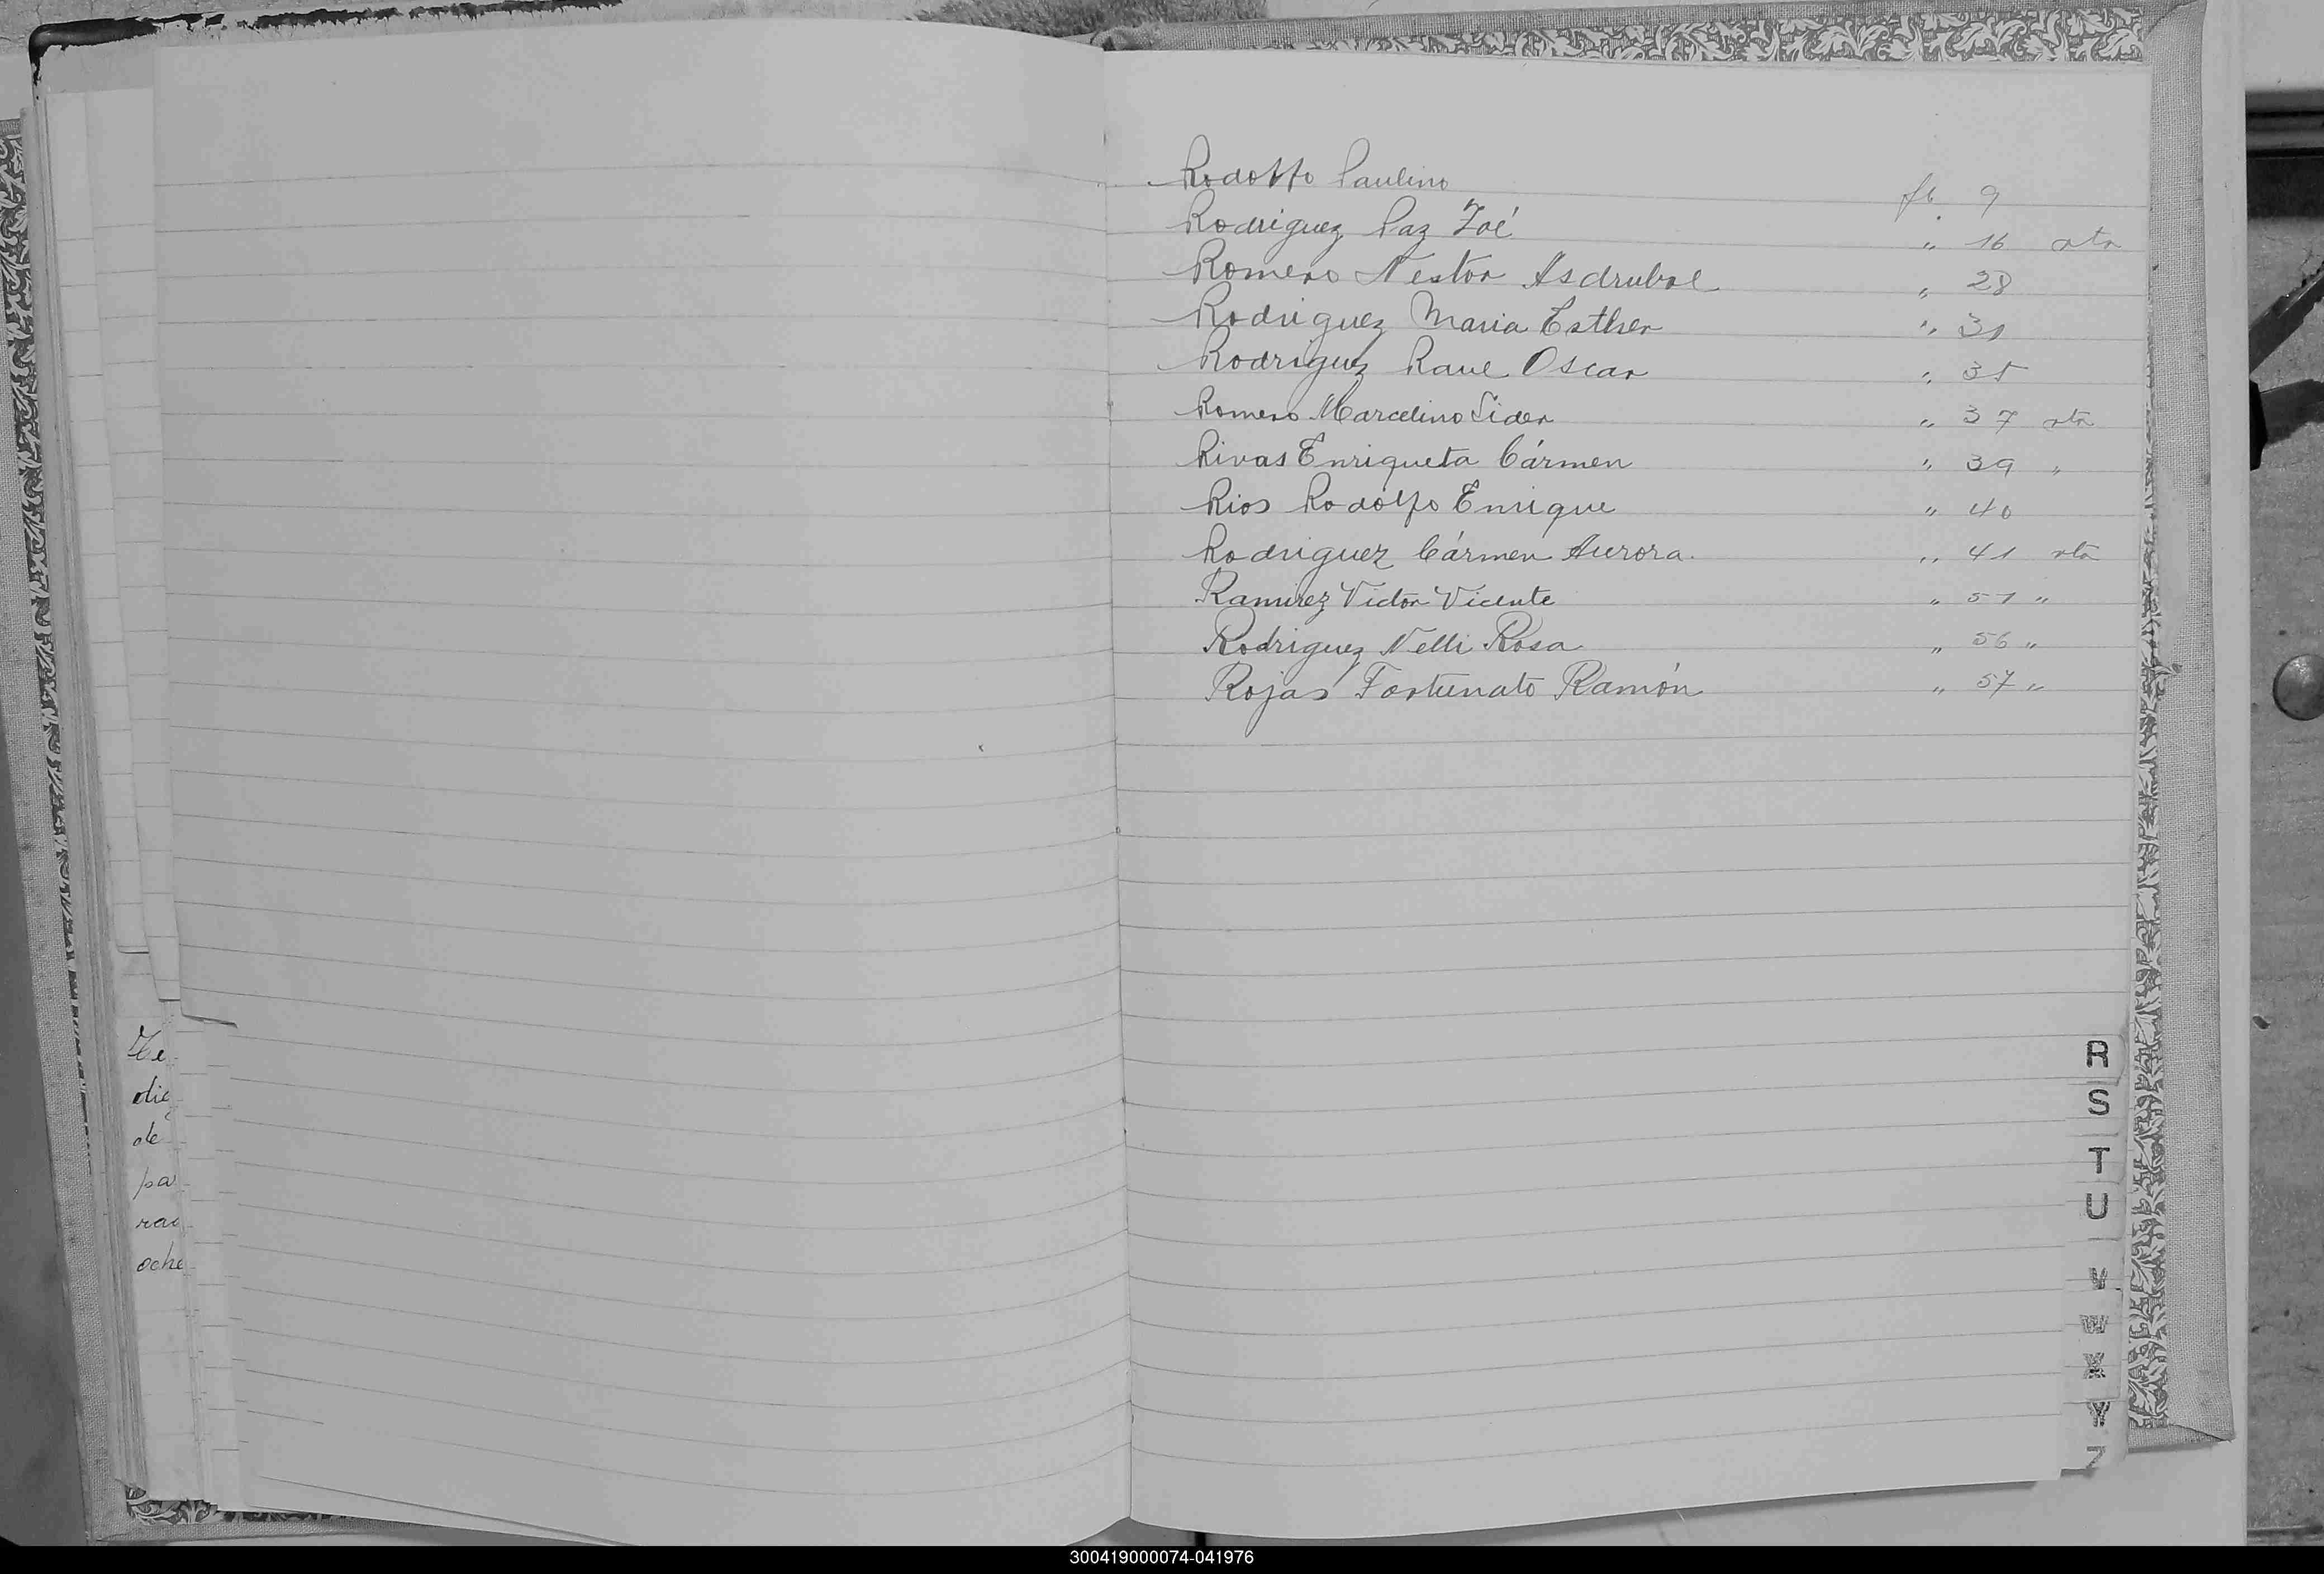 Rodolfo Paulino fl. 9
Rodriguez Paz Zoé " 16 vta
Romero Nestor Asdrubal " 28
Rodriguez Maria Esther " 31
Rodriguez Raul Oscar " 35
Romero Marcelino Lider " 37 vta
Rivas Enriqueta Cármen " 39 "
Rios Rodolfo Enrique " 40
Rodriguez Cármen Aurora. " 41 vta
Ramirez Victor Vicente " 51 "
Rodriguez Nelli Rosa " 56 "
Rojas Fortunato Ramón " 57 "
de
pa
ras
oche
R
S
T
U
V
W
X
Y
Z
300419000074-041976